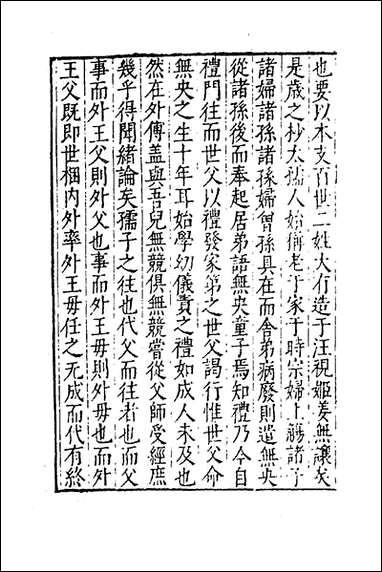 也要以本支百世二姓大有造于汪視姬姜無讓矣
是歲之杪太孺人始稱老于家于時宗婦上觴諸子
諸婦諸孫諸孫婦曾孫具在而舍弟病廢則遣無央
從諸孫後而奉起居弟語無央童子焉知禮乃今自
禮門往而世父以禮發家弟之世父謁行惟世父命
無央之生十年耳始學幼儀責之禮如成人未及也
然在外傅盖與吾兒無競俱無競嘗從父師受經庶
幾乎得聞緒論矣孺子之往也代父而往者也而父
事而外王父則外父也事而外王母則外母也而外
王父既即世梱内外率外王母任之无成而代有終